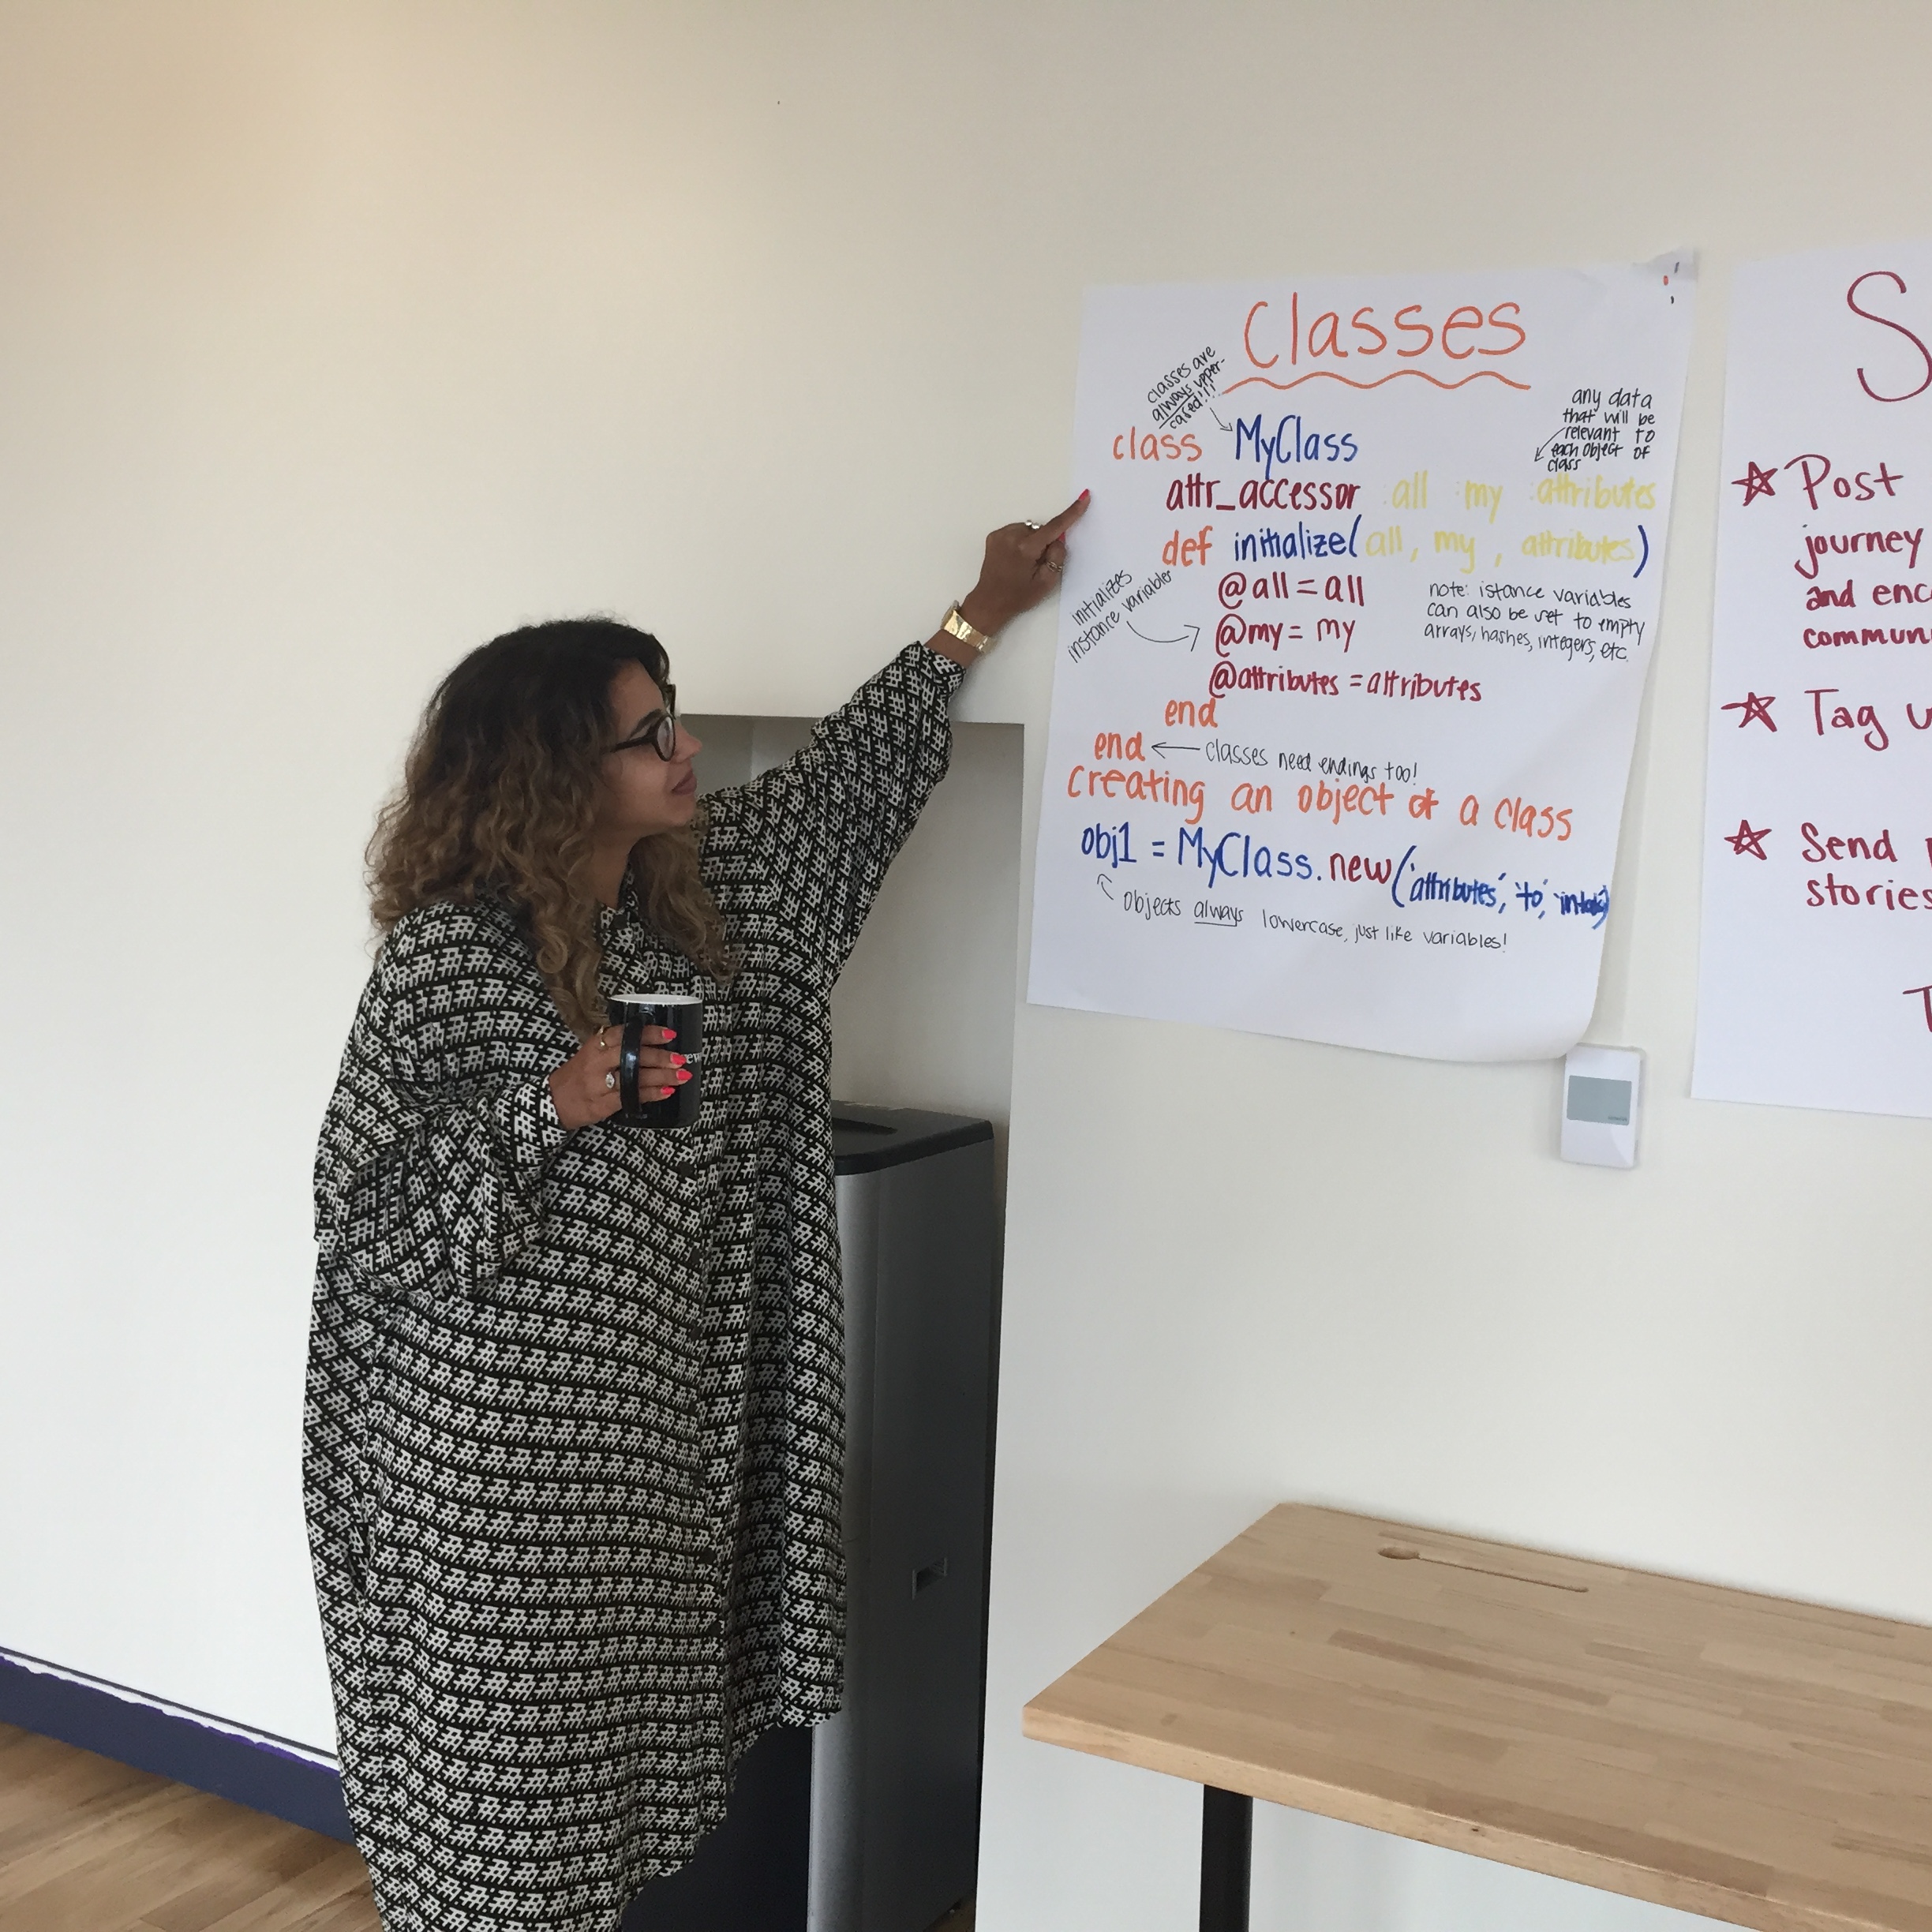 Classes
classes are
always upper-
cased!!!
class MyClass
any data
that will be
relevant to
each object of
class
attr_accessor :all :my :attributes
def initialize(all, my, attributes)
initializes
instance variables
@all = all
@my = my
@attributes = attributes
note: istance variables
can also be set to empty
arrays, hashes, integers, etc.
end
end ← classes need endings too!
creating an object of a class
obj1 = MyClass.new('attributes', 'to',
objects always lowercase, just like variables!
S
☆ Post
journey
and enc
commun
☆ Tag u
☆ Send
stories
T